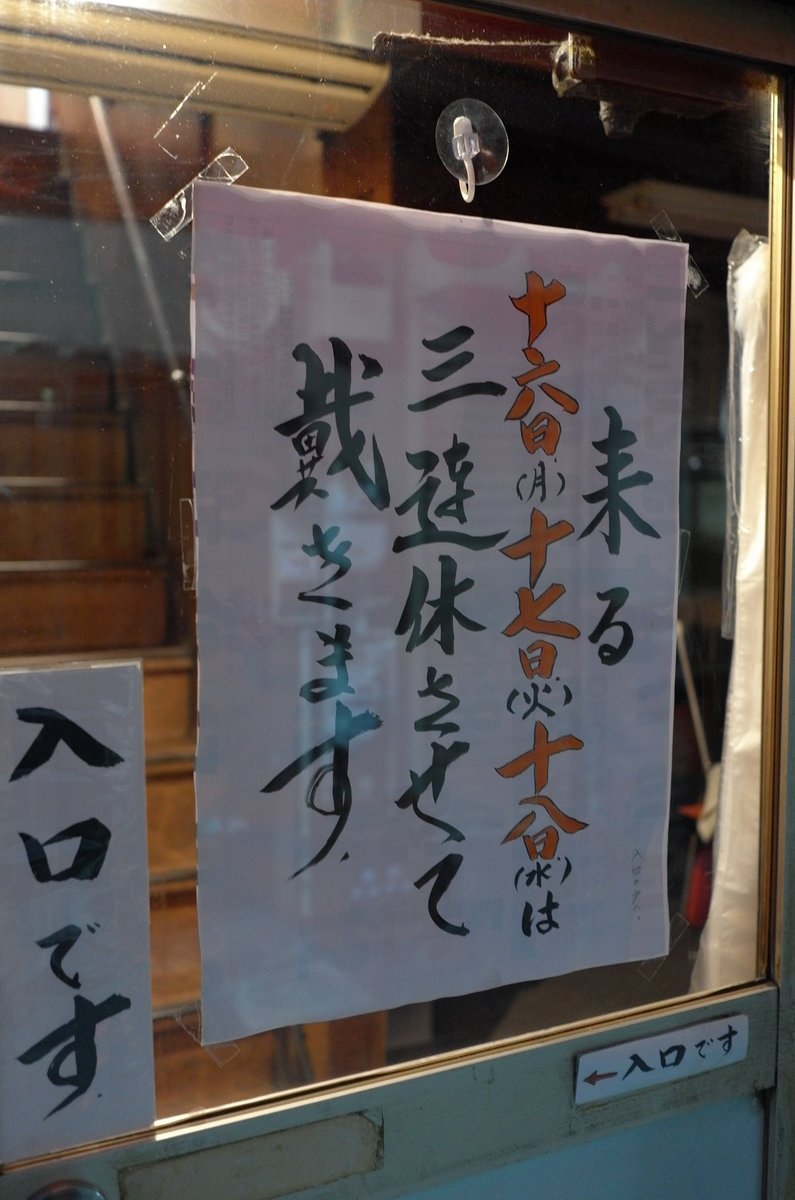 来る
十六日(月)十七日(火)十八日(水)は
三連休させて
戴きます
入口です
←入口です